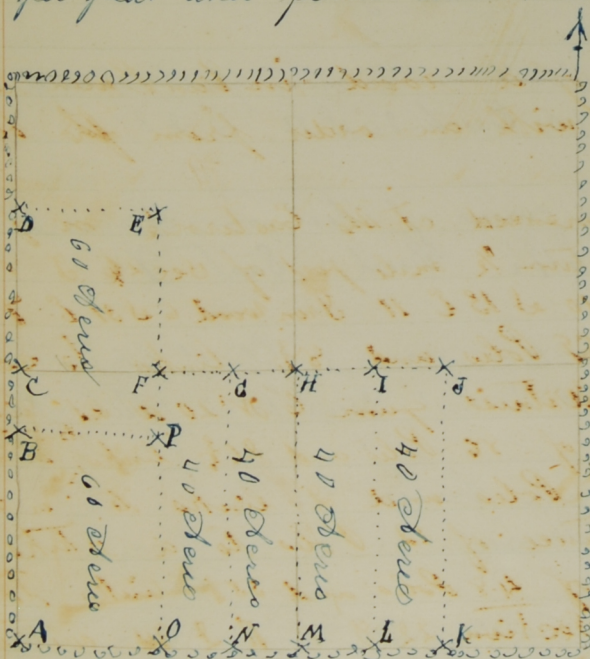 D E
60 Acres
C F G H I J
B P
60 Acres
40 Acres
40 Acres
40 Acres
40 Acres
A O N M L K